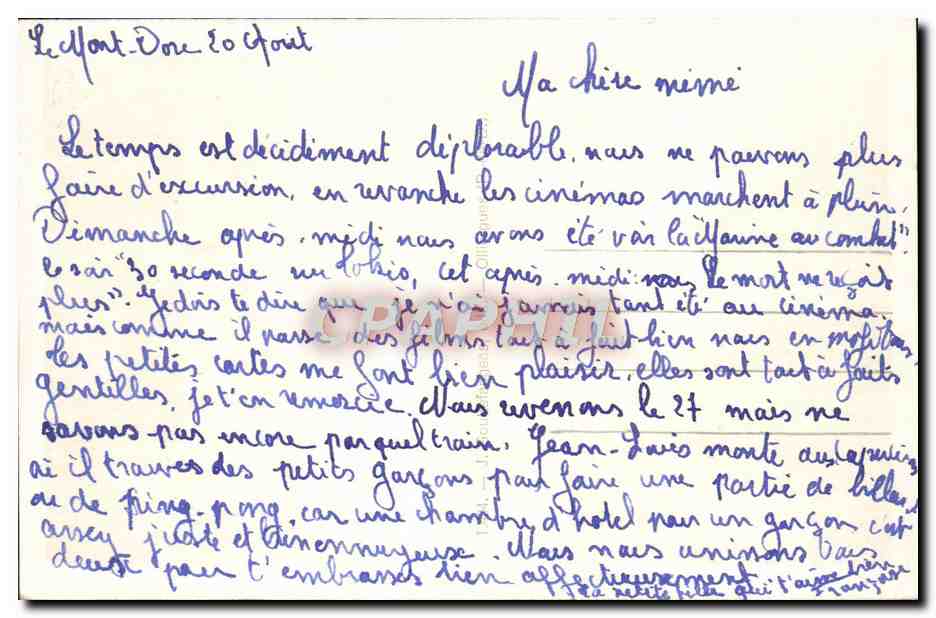 Le Mont-Dore 20 Août
Ma chère mimi
Le temps est décidément déplorable, nous ne pouvons plus
faire d'excursion, en revanche les cinémas marchent à plein.
Dimanche après-midi nous avons été voir "la Marine au combat"
le soir "30 seconde sur Tokio, cet après-midi: Le mort ne reçoit
plus". Je dois te dire que je n'ai jamais tant été au cinéma,
mais comme il passe des films tout à fait bien nous en profitons,
tes petites cartes me font bien plaisir, elles sont tout à faits
gentilles, je t'en remercie. Nous revenons le 27 mais ne
savons pas encore par quel train. Jean-Louis monte aux Capucins
où il trouve des petits garçons pour faire une partie de billes,
ou de ping-pong, car une chambre d'hotel pour un garçon c'est
assez juste et bien ennuyeuse. Nous nous unissons tous
deux pour t'embrasser bien affectueusement
Ta petite fille qui t'aime bien
Françoise
CPAPHIL